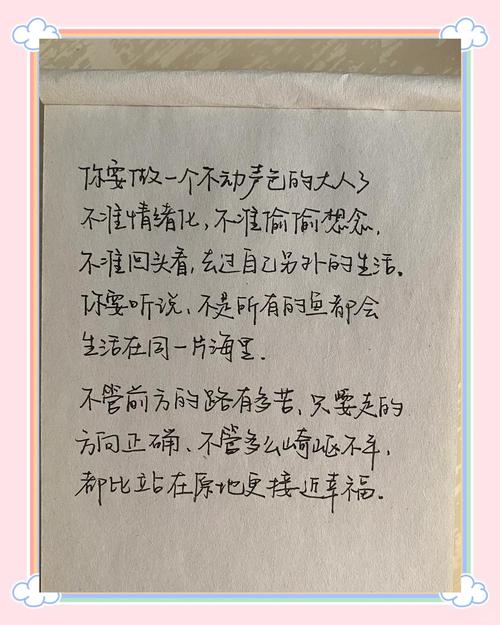 你要做一个不动声色的大人了
不准情绪化,不准偷偷想念,
不准回头看,去过自己另外的生活。
你要听话、不是所有的鱼都会
生活在同一片海里.
不管前方的路有多苦、只要走的
方向正确、不管多么崎岖不平,
都比站在原地更接近幸福。